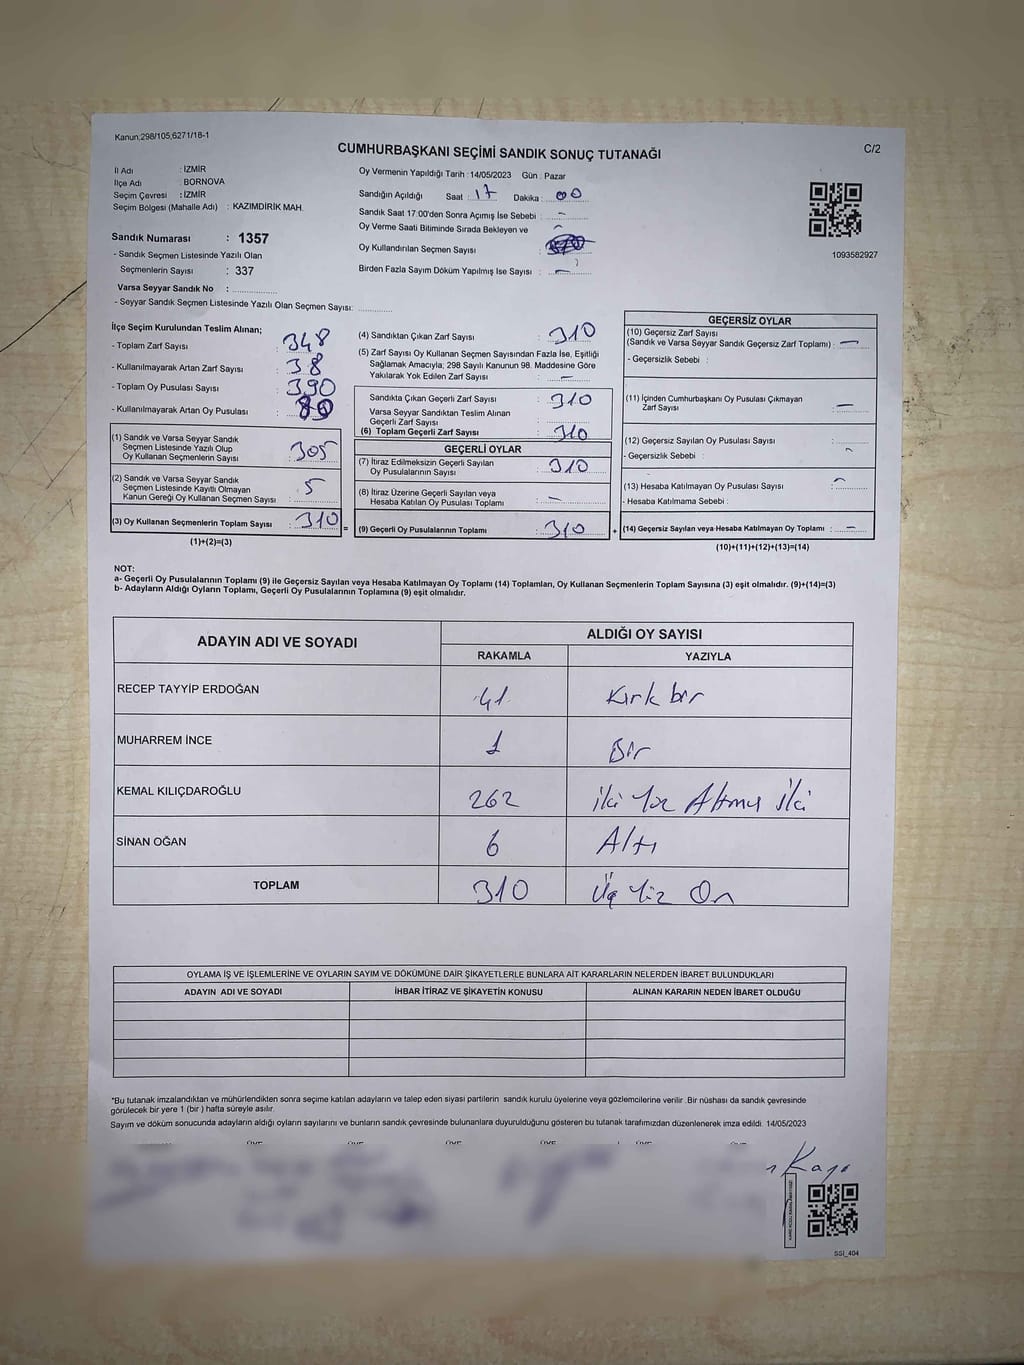 Kanun,298/105,6271/18-1
C/2
CUMHURBAŞKANI SEÇİMİ SANDIK SONUÇ TUTANAĞI
İl Adı : İZMİR
İlçe Adı : BORNOVA
Seçim Çevresi : İZMİR
Seçim Bölgesi (Mahalle Adı) : KAZIMDİRİK MAH.
Sandık Numarası : 1357
- Sandık Seçmen Listesinde Yazılı Olan
Seçmenlerin Sayısı : 337
Varsa Seyyar Sandık No :
- Seyyar Sandık Seçmen Listesinde Yazılı Olan Seçmen Sayısı:
Oy Vermenin Yapıldığı Tarih : 14/05/2023 Gün : Pazar
Sandığın Açıldığı Saat : 17 Dakika : 00
Sandık Saat 17:00'den Sonra Açımış İse Sebebi : -
Oy Verme Saati Bitiminde Sırada Bekleyen ve
Oy Kullandırılan Seçmen Sayısı
Birden Fazla Sayım Döküm Yapılmış İse Sayısı : -
1093582927
İlçe Seçim Kurulundan Teslim Alınan;
- Toplam Zarf Sayısı : 348
- Kullanılmayarak Artan Zarf Sayısı : 38
- Toplam Oy Pusulası Sayısı : 390
- Kullanılmayarak Artan Oy Pusulası : 80
(1) Sandık ve Varsa Seyyar Sandık
Seçmen Listesinde Yazılı Olup
Oy Kullanan Seçmenlerin Sayısı : 305
(2) Sandık ve Varsa Seyyar Sandık
Seçmen Listesinde Kayıtlı Olmayan
Kanun Gereği Oy Kullanan Seçmen Sayısı : 5
(3) Oy Kullanan Seçmenlerin Toplam Sayısı : 310 =
(1)+(2)=(3)
(4) Sandıktan Çıkan Zarf Sayısı : 310
(5) Zarf Sayısı Oy Kullanan Seçmen Sayısından Fazla İse, Eşitliği
Sağlamak Amacıyla; 298 Sayılı Kanunun 98. Maddesine Göre
Yakılarak Yok Edilen Zarf Sayısı : -
Sandıkta Çıkan Geçerli Zarf Sayısı : 310
Varsa Seyyar Sandıktan Teslim Alınan
Geçerli Zarf Sayısı :
(6) Toplam Geçerli Zarf Sayısı : 310
GEÇERLİ OYLAR
(7) İtiraz Edilmeksizin Geçerli Sayılan
Oy Pusulalarının Sayısı : 310
(8) İtiraz Üzerine Geçerli Sayılan veya
Hesaba Katılan Oy Pusulası Toplamı : -
(9) Geçerli Oy Pusulalarının Toplamı : 310 +
GEÇERSİZ OYLAR
(10) Geçersiz Zarf Sayısı
(Sandık ve Varsa Seyyar Sandık Geçersiz Zarf Toplamı) : -
- Geçersizlik Sebebi :
(11) İçinden Cumhurbaşkanı Oy Pusulası Çıkmayan
Zarf Sayısı : -
(12) Geçersiz Sayılan Oy Pusulası Sayısı : -
- Geçersizlik Sebebi :
(13) Hesaba Katılmayan Oy Pusulası Sayısı : -
- Hesaba Katılmama Sebebi :
(14) Geçersiz Sayılan veya Hesaba Katılmayan Oy Toplamı : -
(10)+(11)+(12)+(13)=(14)
NOT:
a- Geçerli Oy Pusulalarının Toplamı (9) ile Geçersiz Sayılan veya Hesaba Katılmayan Oy Toplamı (14) Toplamları, Oy Kullanan Seçmenlerin Toplam Sayısına (3) eşit olmalıdır. (9)+(14)=(3)
b- Adayların Aldığı Oyların Toplamı, Geçerli Oy Pusulalarının Toplamına (9) eşit olmalıdır.
ADAYIN ADI VE SOYADI
ALDIĞI OY SAYISI
RAKAMLA YAZIYLA
RECEP TAYYİP ERDOĞAN 41 Kırk bir
MUHARREM İNCE 1 Bir
KEMAL KILIÇDAROĞLU 262 iki Yüz Altmış İki
SİNAN OĞAN 6 Altı
TOPLAM 310 Üç Yüz On
OYLAMA İŞ VE İŞLEMLERİNE VE OYLARIN SAYIM VE DÖKÜMÜNE DAİR ŞİKAYETLERLE BUNLARA AİT KARARLARIN NELERDEN İBARET BULUNDUKLARI
ADAYIN ADI VE SOYADI İHBAR İTİRAZ VE ŞİKAYETİN KONUSU ALINAN KARARIN NEDEN İBARET OLDUĞU
*Bu tutanak imzalandıktan ve mühürlendikten sonra seçime katılan adayların ve talep eden siyasi partilerin sandık kurulu üyelerine veya gözlemcilerine verilir. Bir nüshası da sandık çevresinde
görülecek bir yere 1 (bir) hafta süreyle asılır.
Sayım ve döküm sonucunda adayların aldığı oyların sayılarını ve bunların sandık çevresinde bulunanlara duyurulduğunu gösteren bu tutanak tarafımızdan düzenlenerek imza edildi. 14/05/2023
SSİ_404